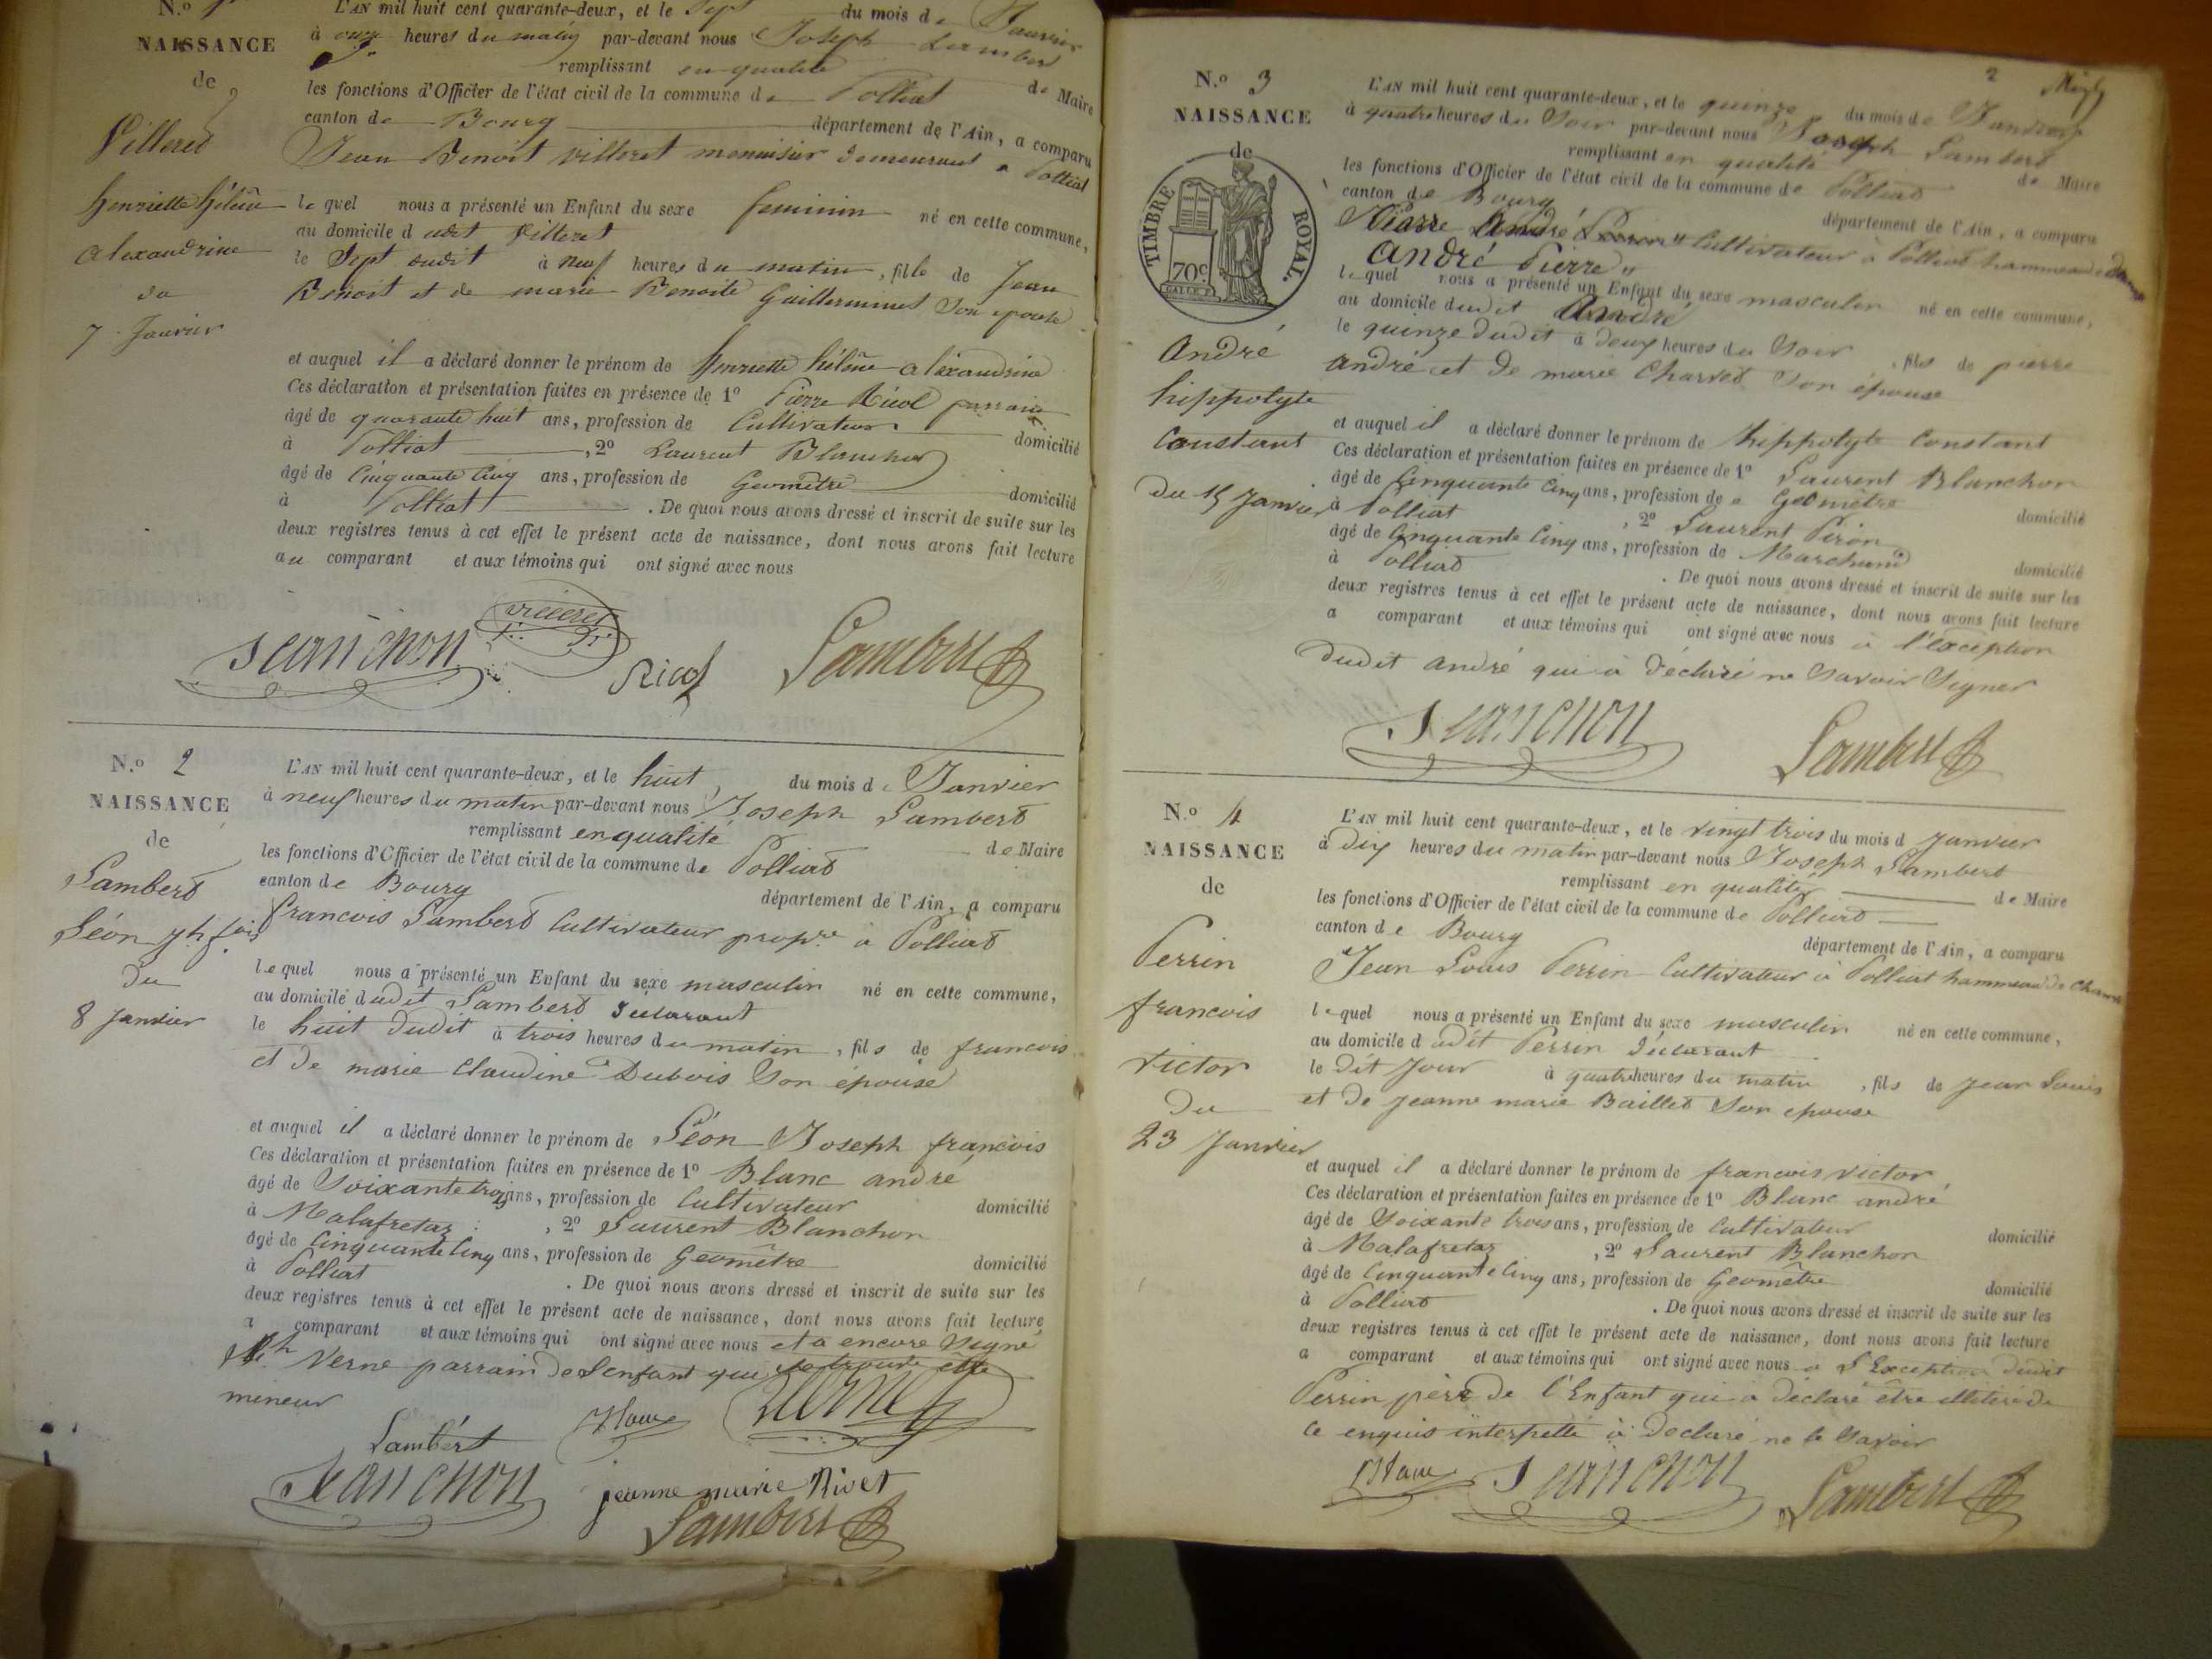 N.o
L'AN mil huit cent quarante-deux, et le Sept du mois de Janvier
NAISSANCE
à onze heures du matin par-devant nous Joseph Lambert
remplissant en qualité de Maire
de
les fonctions d'Officier de l'état civil de la commune de Polliat
canton de Bourg département de l'Ain, a comparu
Villeret
Jean Benoit villeret menuisier demeurant a Polliat
henriette hélène
le quel nous a présenté un Enfant du sexe feminin né en cette commune,
au domicile dudit Villeret
alexandrine
le Sept dudit à neuf heures du matin, fille de Jean
du
Benoit et de marie Benoite Guillerminet Son epouse
7 Janvier
et auquel il a déclaré donner le prénom de henriette hélène alexandrine
Ces déclaration et présentation faites en présence de 1o Pierre Ricol parrain
âgé de quarante huit ans, profession de Cultivateur domicilié
à Polliat, 2o Laurent Blanchon
âgé de Cinquante Cinq ans, profession de Géomètre domicilié
à Polliat. De quoi nous avons dressé et inscrit de suite sur les
deux registres tenus à cet effet le présent acte de naissance, dont nous avons fait lecture
au comparant et aux témoins qui ont signé avec nous
villeret
Blanchon Ricol Lambert
N.o 2
L'AN mil huit cent quarante-deux, et le huit du mois de Janvier
NAISSANCE
à neuf heures du matin par-devant nous Joseph Lambert
remplissant en qualité de Maire
de
les fonctions d'Officier de l'état civil de la commune de Polliat
canton de Bourg département de l'Ain, a comparu
Lambert
francois Lambert Cultivateur prop.re à Polliat
Léon jh fois
le quel nous a présenté un Enfant du sexe masculin né en cette commune,
du
au domicile dudit Lambert déclarant
8 Janvier
le huit dudit à trois heures du matin, fils de francois
et de marie Claudine Dubois Son épouse
et auquel il a déclaré donner le prénom de Léon Joseph françois
Ces déclaration et présentation faites en présence de 1o Blanc andré
âgé de Soixante trois ans, profession de Cultivateur domicilié
à Malafretaz, 2o Laurent Blanchon
âgé de Cinquante Cinq ans, profession de Géomètre domicilié
à Polliat. De quoi nous avons dressé et inscrit de suite sur les
deux registres tenus à cet effet le présent acte de naissance, dont nous avons fait lecture
a comparant et aux témoins qui ont signé avec nous et a encore Signé
Verne parrain de l'enfant qui se trouve être
mineur
Lambert Verne
Blanchon jeanne marie Rivet
Lambert
2
N.o 3
L'AN mil huit cent quarante-deux, et le quinze du mois de Janvier
NAISSANCE
à quatre heures du Soir par-devant nous Joseph Lambert
remplissant en qualité de Maire
de
les fonctions d'Officier de l'état civil de la commune de Polliat
canton de Bourg département de l'Ain, a comparu
TIMBRE ROYAL.
70c
Pierre André Cultivateur à Polliat hammeau de
André Pierre
le quel nous a présenté un Enfant du sexe masculin né en cette commune,
au domicile dudit André
le quinze dudit à deux heures du Soir, fils de pierre
André
andré et de marie Charvet Son épouse
hippolyte
et auquel il a déclaré donner le prénom de hippolyte Constant
Constant
Ces déclaration et présentation faites en présence de 1o Laurent Blanchon
âgé de Cinquante Cinq ans, profession de Géomètre domicilié
du 15 Janvier
à Polliat, 2o Laurent Piron
âgé de Cinquante Cinq ans, profession de Marchand domicilié
à Polliat. De quoi nous avons dressé et inscrit de suite sur les
deux registres tenus à cet effet le présent acte de naissance, dont nous avons fait lecture
a comparant et aux témoins qui ont signé avec nous à l'éxception
dudit andré qui à déclaré ne Savoir Signer
Blanchon Lambert
N.o 4
L'AN mil huit cent quarante-deux, et le vingt trois du mois d Janvier
NAISSANCE
à dix heures du matin par-devant nous Joseph Lambert
remplissant en qualité de Maire
de
les fonctions d'Officier de l'état civil de la commune de Polliat
canton de Bourg département de l'Ain, a comparu
Perrin
Jean Louis Perrin Cultivateur à Polliat hammeau de
francois
le quel nous a présenté un Enfant du sexe masculin né en cette commune,
au domicile dudit Perrin déclarant
victor
le dit Jour à quatre heures du matin, fils de Jean Louis
du
et de jeanne marie Baillet Son epouse
23 Janvier
et auquel il a déclaré donner le prénom de francois victor
Ces déclaration et présentation faites en présence de 1o Blanc andré
âgé de Soixante trois ans, profession de Cultivateur domicilié
à Malafretaz, 2o Laurent Blanchon
âgé de Cinquante Cinq ans, profession de Géomètre domicilié
à Polliat. De quoi nous avons dressé et inscrit de suite sur les
deux registres tenus à cet effet le présent acte de naissance, dont nous avons fait lecture
a comparant et aux témoins qui ont signé avec nous a L'Exception dudit
Perrin père de l'Enfant qui à déclaré être illitéré de
ce enquis interpellé à déclaré ne le Savoir
Blanchon Lambert